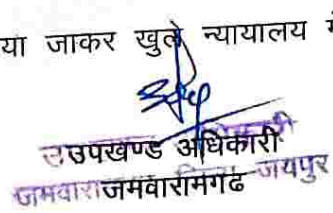 या जाकर खुले न्यायालय में
उपखण्ड अधिकारी
जमवारामगढ जयपुर